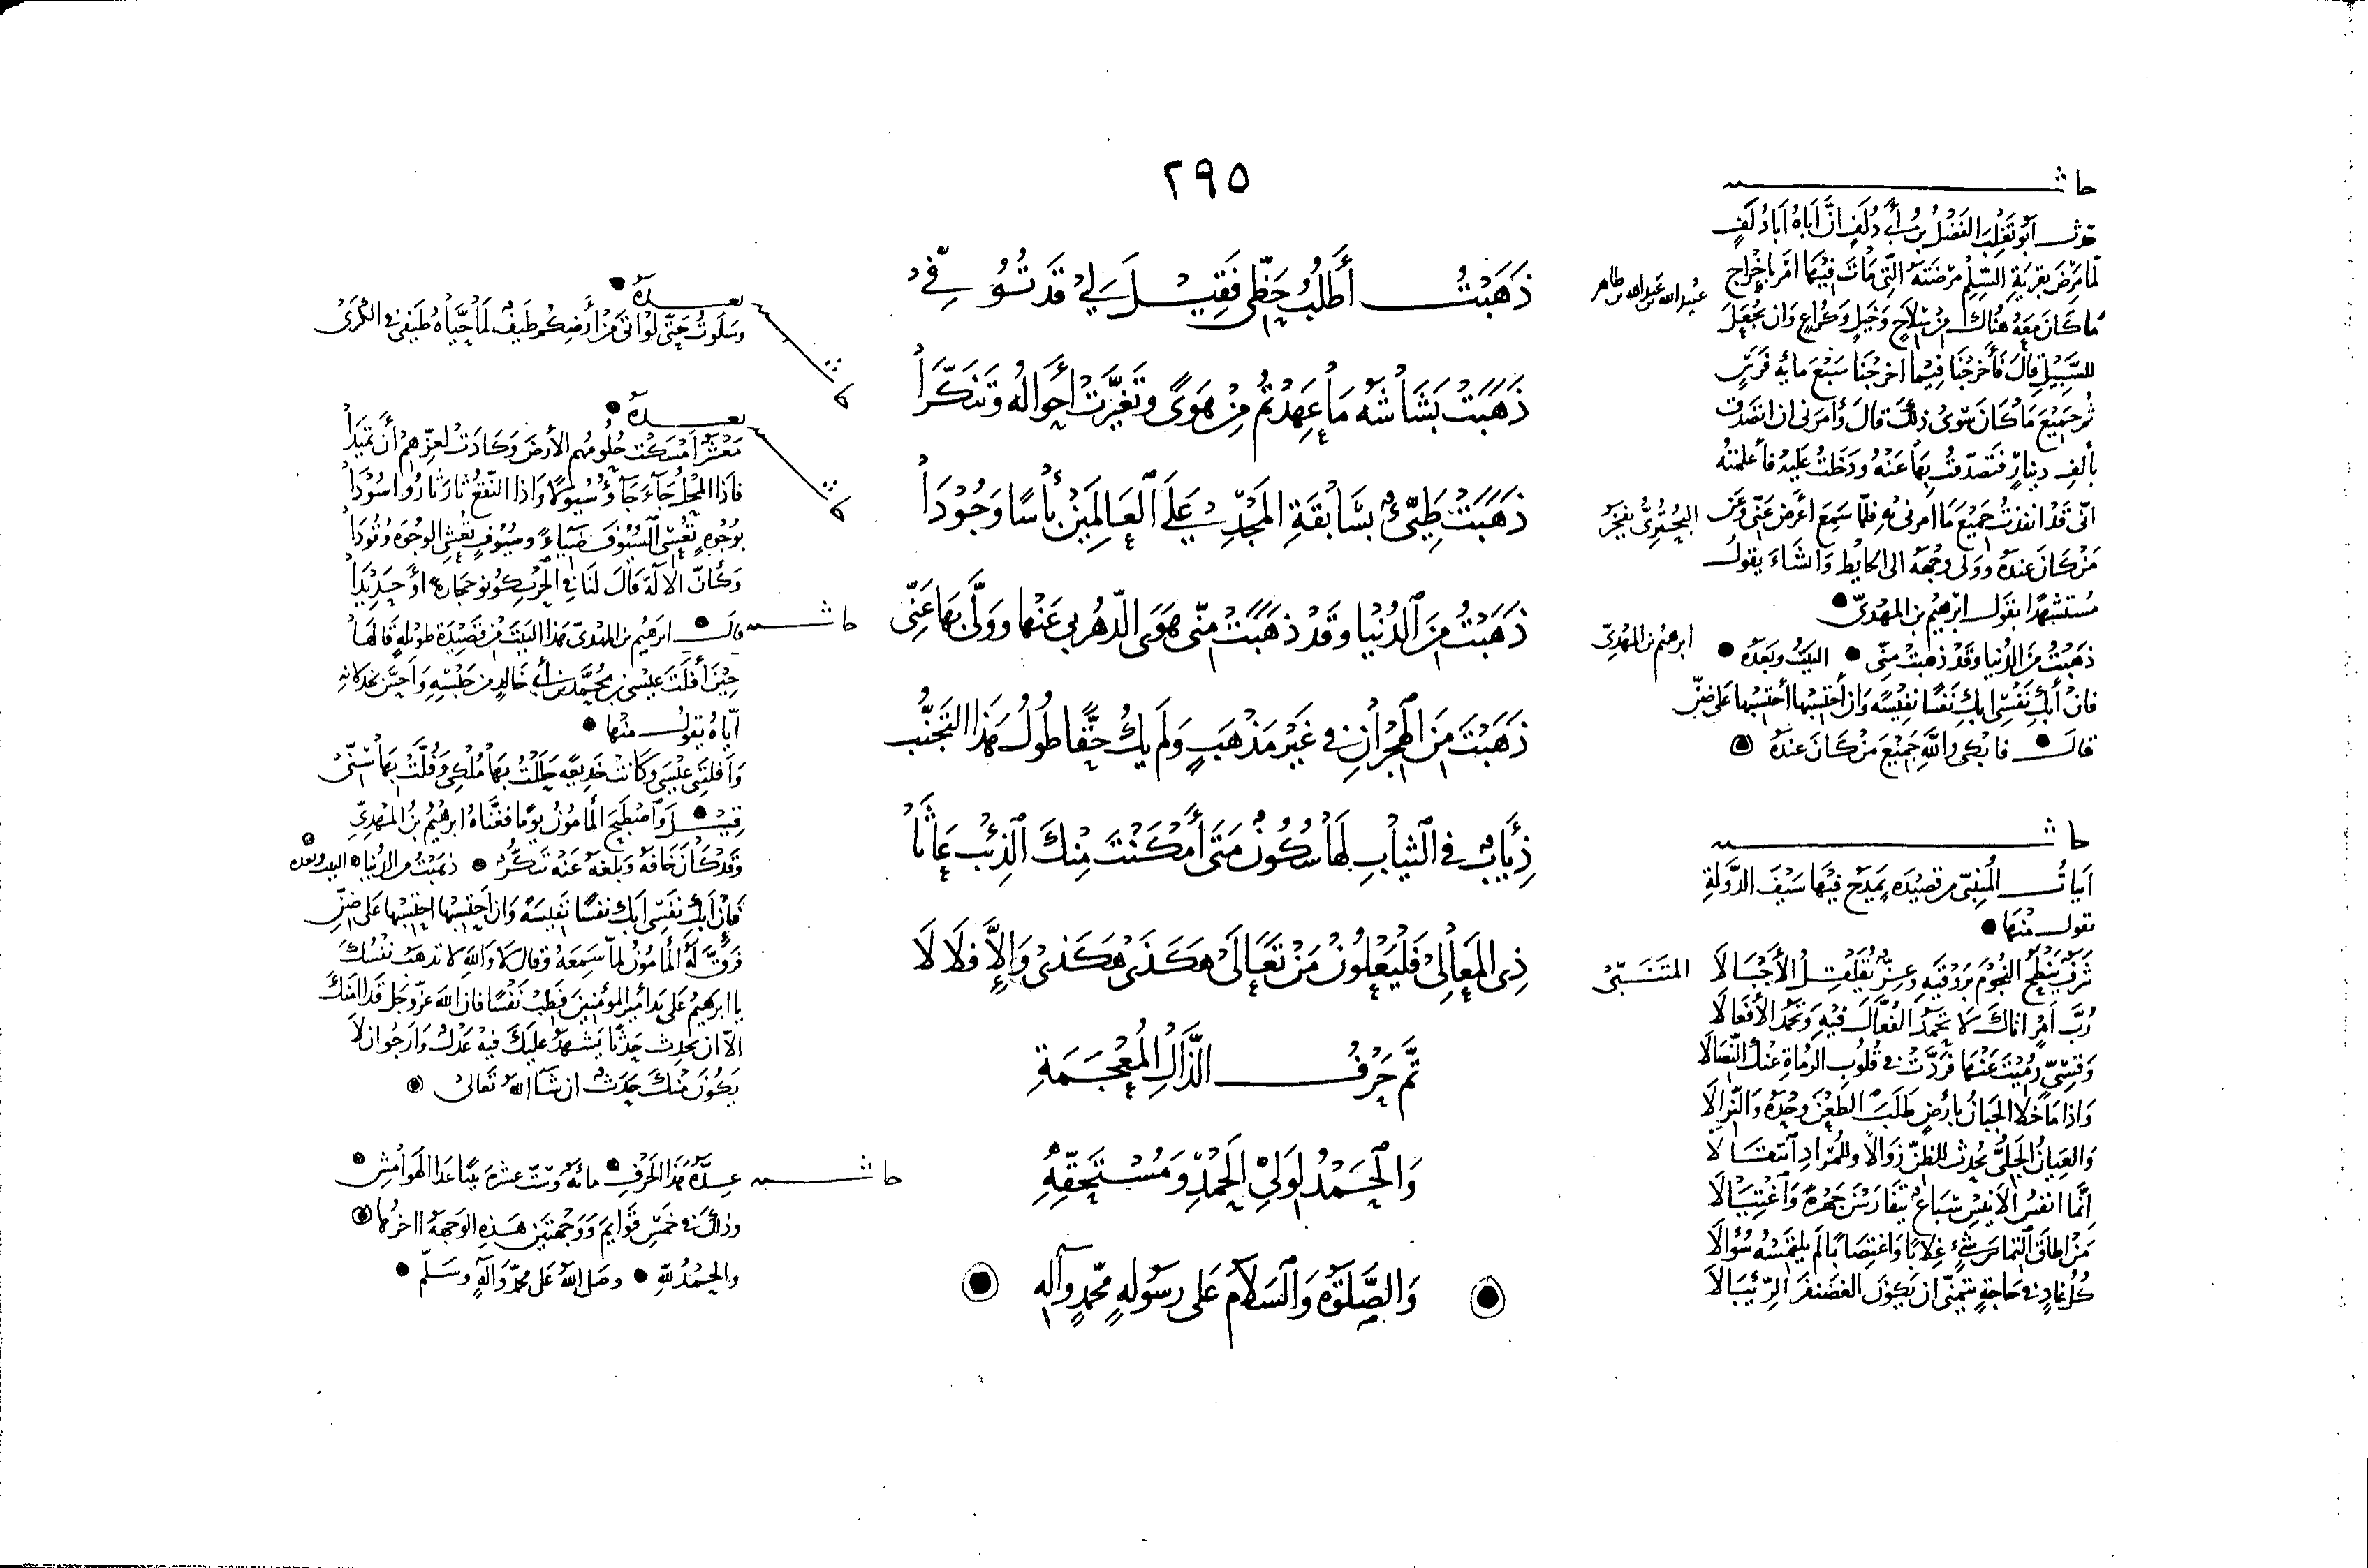 ٢٩٥
ذَهَبْتُ أَطْلُبُ حَظِّي فَقِيلَ لِي قَدْ تُوُفِّي
ذَهَبَتْ بَشَاشَةُ مَا عَهِدْتُم مِنْ هَوًى وَتَغَيَّرَتْ أَحْوَالُهُ وَتَنَكَّرَا
ذَهَبَتْ طَيِّئٌ بِسَابِقَةِ المَجْدِ عَلَى العَالَمِينَ بَأْسًا وَجُودَا
ذَهَبْتُ مِنَ الدُّنْيَا وَقَدْ ذَهَبَتْ مِنِّي هَوَى الدَّهْرُ بِي عَنْهَا وَوَلَّى بِهَا عَنِّي
ذَهَبْتَ مِنَ الهِجْرَانِ فِي غَيْرِ مَذْهَبٍ وَلَمْ يَكُ حَقًّا طُولُ هَذَا التَّجَنُّبِ
ذِئَابٌ فِي الثِّيَابِ لَهَا سُكُونٌ مَتَى أَمْكَنْتَ مِنْكَ الذِّئْبَ عَاثَا
ذِي المَعَالِي فَلْيَعْلُوَنْ مَنْ تَعَالَى هَكَذَى هَكَذَى وَإِلَّا فَلَا لَا
تَمَّ حَرْفُ الذَّالِ المُعْجَمَةِ
وَالحَمْدُ لِوَلِيِّ الحَمْدِ وَمُسْتَحِقِّهِ
وَالصَّلوةُ وَالسَّلَامُ عَلَى رَسُولِهِ مُحَمَّدٍ وَآلِهِ
حاشـــيـه
حدث أبو تغلب الفضل بن أبي دلف ان أباه أبا دلف
لما مرض بقرية السلم مرضته التي مات فيها امر باخراج
ما كان معه هناك من سلاح وخيل وكراع وان يجعل
للسبيل قال فأخرجنا فيما اخرجنا سبع مايه فرس
ثم جميع ما كان سوى ذلك قال وأمرني ان اتصدق
بألف دينار فتصدقت بها عنه ودخلت عليه فأعلمته
اني قد انفذت جميع ما امرني به فلما سمع أعرض عني وعن
من كان عنده وولى وجهه الى الحايط وانشاء يقول
مستشهدا بقول ابرهيم بن المهدي
ذهبت من الدنيا وقد ذهبت مني البيت وبعده
فان أبك نفسي ابك نفسا نفيسه وان أحتسبها أحتسبها على ضن
قال فابكى والله جميع من كان عنده
عبيد الله بن عبد الله بن طاهر
البحتري يفخر
ابرهيم بن المهدي
المتنبي
حاشـــيـه
أبيات المتنبي من قصيده يمدح فيها سيف الدولة
يقول منها
شرف ينطح النجوم بروقيه وعز يقلقل الأجبالا
رب امر اتاك لا تحمد الفعال فيه وتحمد الأفعالا
وقسي رميت عنها فردت في قلوب الرماة عنك النصالا
واذا ما خلا الجبان بأرض طلب الطعن وحده والنزالا
والعيان الجلي يحدث للظن زوالا وللمراد انتقالا
إنما انفس الانيس سباع يتفارسن جهرة واغتيالا
من اطاق التماس شيء غلابا واغتصابا لم يلتمسه سؤالا
كل غاد في حاجة يتمنى ان يكون الغضنفر الرئبالا
بعده
وسلوت حتى لو اتى من أرضكم طيف لما حياه طيفي في الكرى
بعده
معشر امسكت حلومهم الأرض وكادت لعزهم أن تميدا
فاذا المحل جاء جاؤا سيولا واذا النقع ثار ثاروا اسودا
بوجوه تعشي السيوف ضياء وسيوف تعشي الوجوه وقودا
وكأن الاله قال لنا في الحرب كونوا حجارة أو حديدا
حاشـــيـه قال ابرهيم بن المهدي هذا البيت من قصيدة طويلة قالها
حين أفلت عيسى بن محمد بن أبي خالد من حبسه واحس بخذلانه
اياه يقول منها
وأفلتني عيسى وكانت خديعه حللت بها ملكي وفلت بها سني
قيل واصطبح المأمون يوما فغناه ابرهيم بن المهدي
وقد كان خافه وبلغه عنه تنكر ذهبت من الدنيا البيت وبعده
فإن أبك نفسي ابك نفسا نفيسة وان احتسبها احتسبها على ضن
فرق له المأمون لما سمعه وقال لا والله لا تذهب نفسك
يا ابرهيم على يد أمير المؤمنين فطب نفسا فان الله عز وجل قد امنك
الا ان تحدث حدثا يشهد عليك فيه عدل وأرجو ان لا
يكون منك حدث ان شاء الله تعالى
حاشـــيـه عدة هذا الحرف مائه وست عشرة بيتا عدا الهوامش
وذلك في خمس قوايم ووجهتين هذه الوجهة اخرها
والحمد لله وصلى الله على محمد وآله وسلم